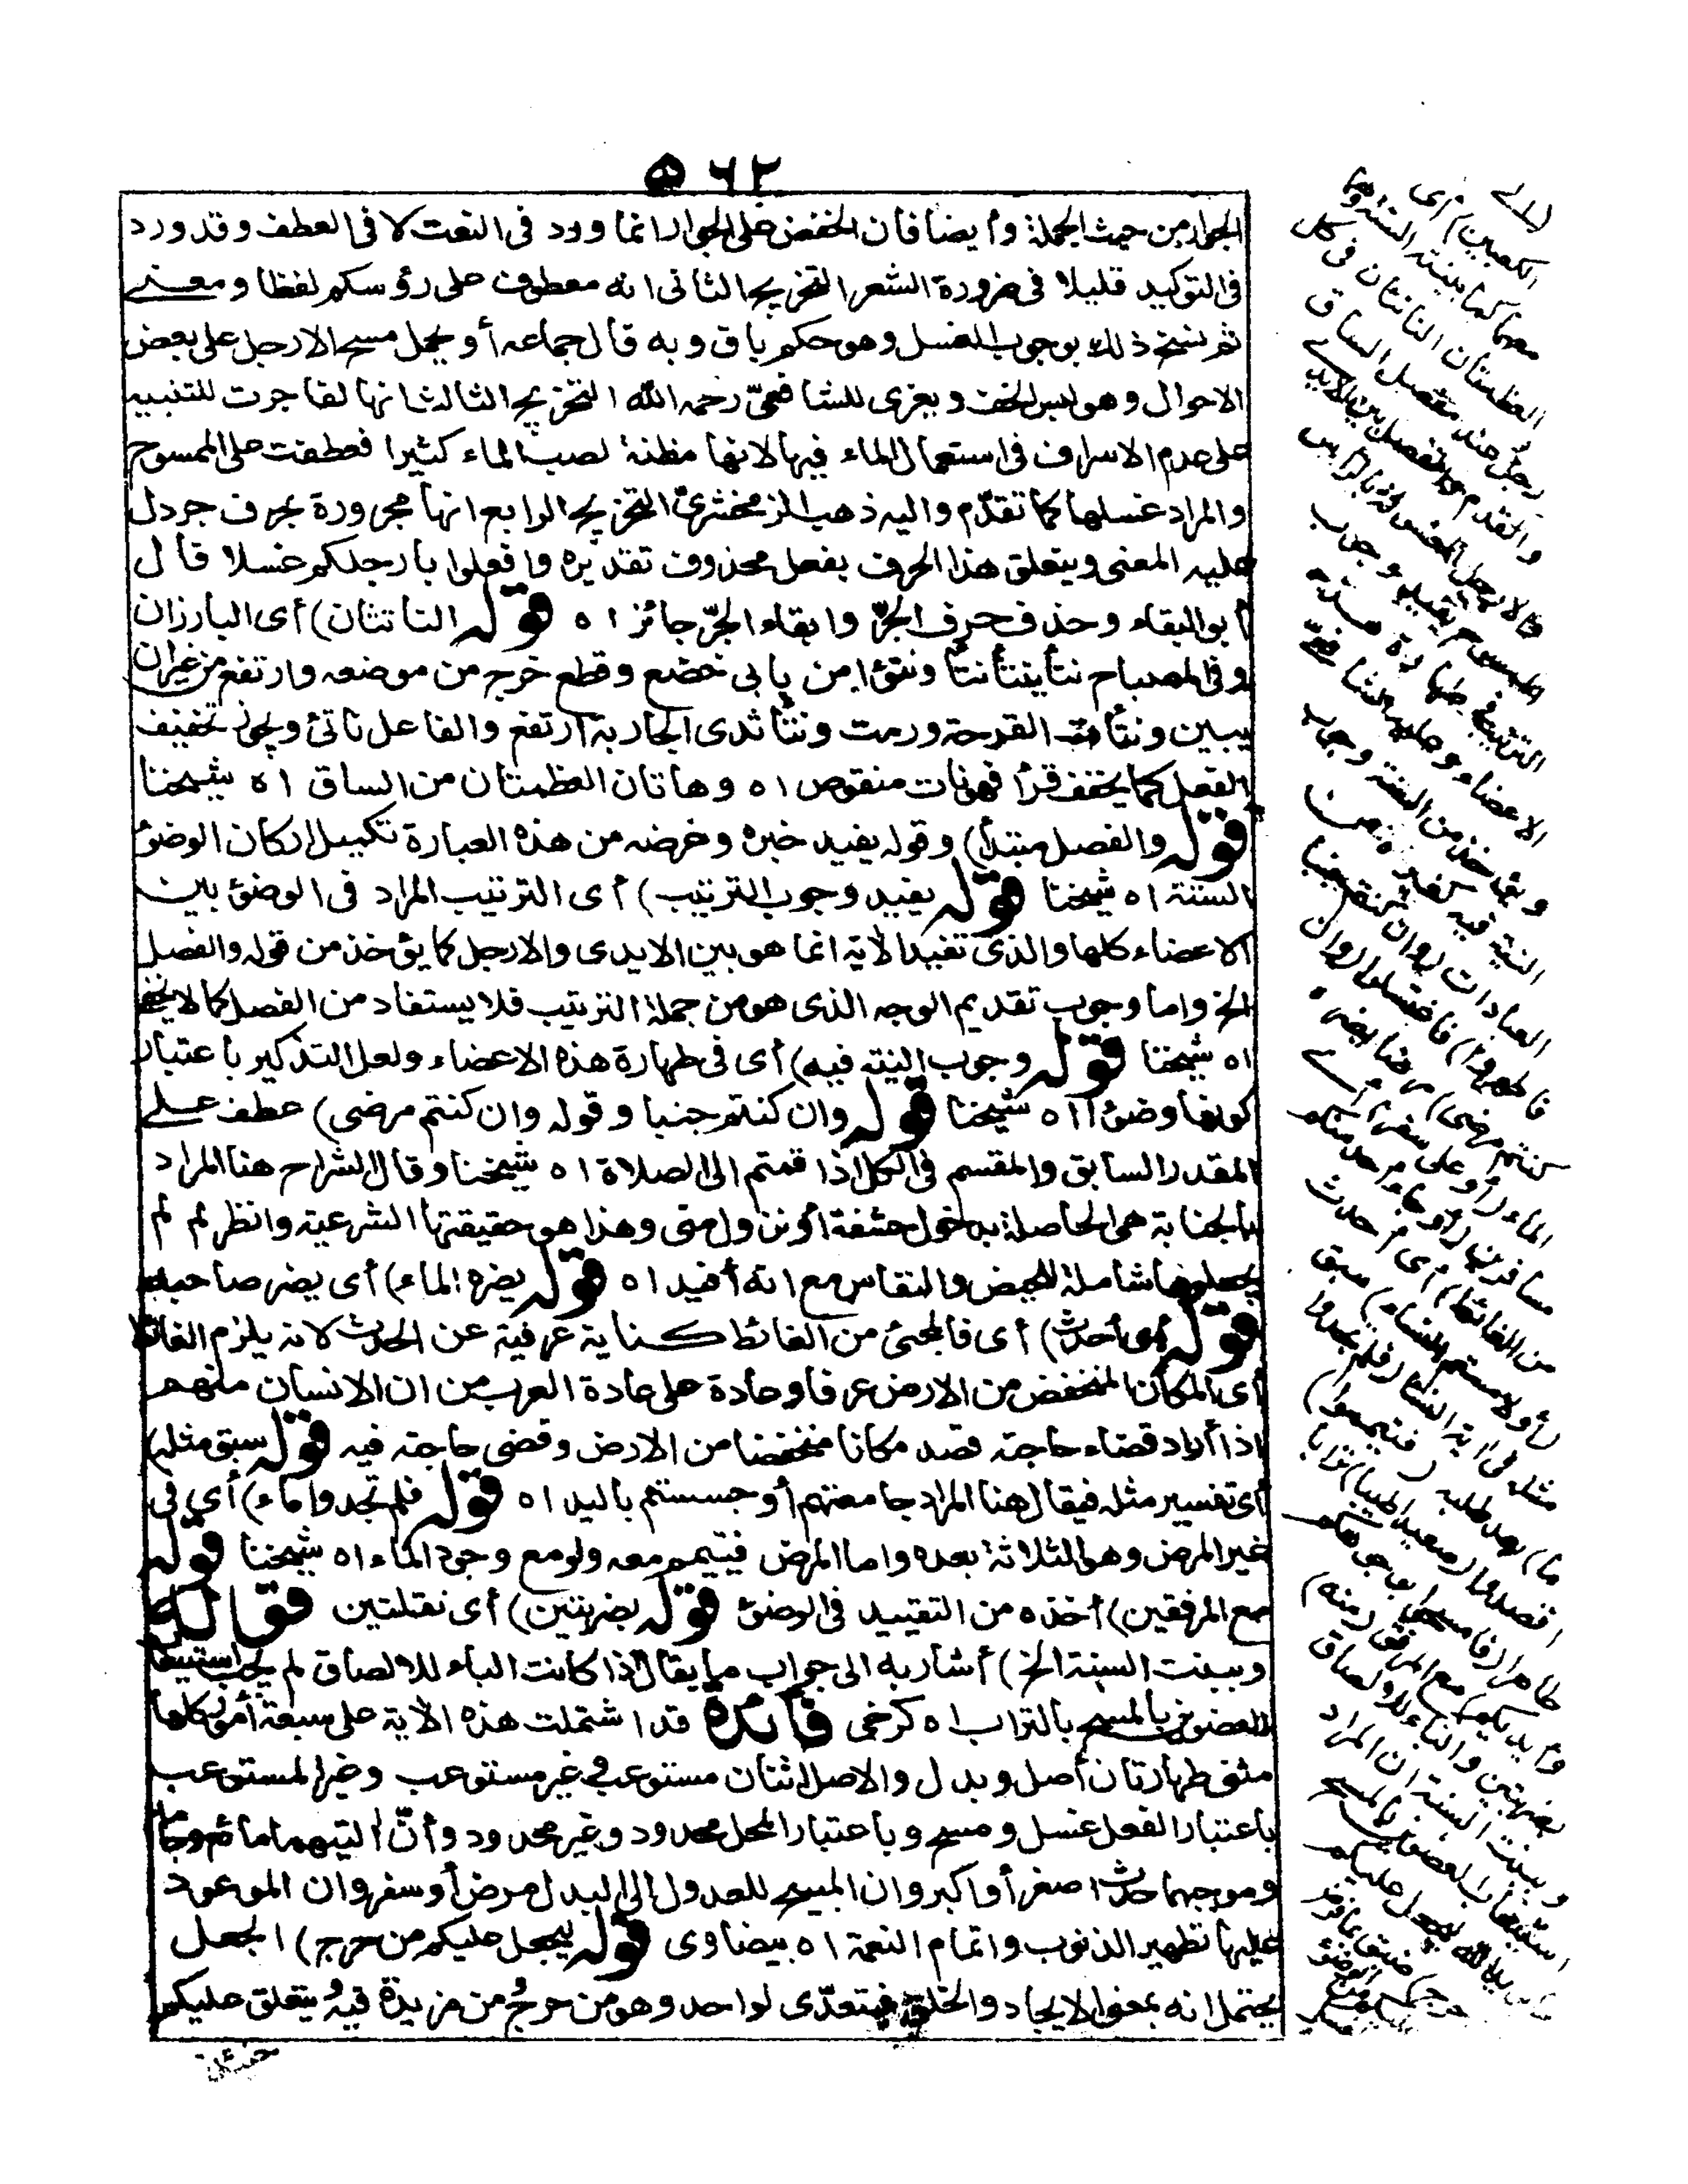 ٥٦٢
الجوار من حيث الجملة وأيضا فان الخفض على الجوار انما ورد في النعت لا في العطف وقد ورد
في التوكيد قليلا في ضرورة الشعر التخريج الثاني انه معطوف على رؤسكم لفظا ومعنى
ثم نسخ ذلك بوجوب الغسل وهو حكم باق وبه قال جماعه أو يحمل مسح الارجل على بعض
الاحوال وهو لبس الخف ويعزى للشافعيّ رحمه الله التخريج الثالث انها لقا جرت للتنبيه
على عدم الاسراف في استعمال الماء فيها لانها مظنة لصب الماء كثيرا فعطفت على الممسوح
والمراد غسلها كما تقدّم واليه ذهب الزمخشريّ التخريج الرابع انها مجرورة بحرف جر دل
عليه المعنى ويتعلق هذا الحرف بفعل محذوف تقديره وافعلوا بارجلكم غسلا قال
أبو البقاء وحذف حرف الجرّ وابقاء الجرّ جائز اه قوله الناتئان) أى البارزان
وفي المصباح نتأ ينتأ نتأ ونتوّا من بابى خضع وقطع خرج من موضعه وارتفع من غير ان
يبين ونتأت القرحة ورمت ونتأ ثدى الجاربة ارتفع والفاعل ناتئ ويجوز تخفيف
الفعل كما يخفف قرأ فهو نات منقوص اه وهاتان العظمتان من الساق اه شيخنا
قوله والفصل مبتدأ) وقوله يفيد خبره وغرضه من هذه العبارة تكميل اركان الوضوء
الستة اه شيخنا قوله يفيد وجوب الترتيب) أى الترتيب المراد في الوضوء بين
الاعضاء كلها والذى تفيد الآية انما هو بين الايدى والارجل كما يؤخذ من قوله والفصل
الخ واما وجوب تقديم الوجه الذى هو من جملة الترتيب فلا يستفاد من الفصل كما لا يخفى
اه شيخنا قوله وجوب النية فيه) أى في طهارة هذه الاعضاء ولعل التذكير باعتبار
كونها وضوءا اه شيخنا قوله وان كنتم جنبا وقوله وان كنتم مرضى) عطف على
المقدر السابق والمقسم في الكل اذا قمتم الى الصلاة اه شيخنا وقال الشراح هنا المراد
بالجنابة هى الحاصلة بدخول حشفة أو نزول منى وهذا هو حقيقتها الشرعية وانظر لم لم
يجعلوها شاملة للحيض والنفاس مع انه أفيد اه قوله يضره الماء) أى يضر صاحبه
قوله أى أحدث) أى فالمجئ من الغائط كناية عرفية عن الحدث لانه يلزم الغائط
أى المكان المنخفض من الارض عرفا وعادة على عادة العرب من ان الانسان منهم
اذا أراد قضاء حاجته قصد مكانا منخفضا من الارض وقضى حاجته فيه قوله سبق مثله)
أى تفسير مثله فيقال هنا المراد جامعتهم أو جسستم باليد اه قوله فلم تجدوا ماء) أى في
غير المرض وهو الثلاثة بعده واما المرض فيتيمم معه ولو مع وجود الماء اه شيخنا قوله
مع المرفقين) أخذه من التقييد في الوضوء قوله بضربتين) أى نقلتين قوله
وبينت السنة الخ) أشار به الى جواب ما يقال اذا كانت الباء للالصاق لم يجب استيعاب
العضوين بالمسح بالتراب اه كرخى فائدة قد اشتملت هذه الآية على سبعة أمور كلها
مثنى طهارتان أصل وبدل والاصل اثنان مستوعب وغير مستوعب وغير المستوعب
باعتبار الفعل غسل ومسح وباعتبار المحل محدود وغير محدود وأنّ آلتيهما مائع وجامد
وموجبهما حدث اصغر أو اكبر وان المبيح للعدول الى البدل مرض أو سفر وان الموعود
عليها تطهير الذنوب واتمام النعمة اه بيضاوى قوله ليجعل عليكم من حرج) الجعل
يحتمل انه بمعنى الايجاد والخلق فيتعدّى لواحد وهو من حرج ومن مزيدة فيه ويتعلق عليكم
الكعبين) أى
معهما كما بينته السنة وهما
العظمتان الناتئان في كل
رجل عند مفصل الساق
والقدم والفصل بين الايدى
والارجل المغسولة بالرأس
الممسوح يفيد وجوب
الترتيب في طهارة هذه
الاعضاء وعليه الشافعيّ
ويؤخذ من السنة وجوب
النية فيه كغيره من
العبادات (وان كنتم جنبا
فاطهروا) فاغتسلوا (وان
كنتم مرضى) مرضا يضره
الماء (أو على سفر) أى
مسافرين (أو جاء أحد منكم
من الغائط) أى أحدث
(أو لامستم النساء) سبق
مثله في آية النساء (فلم تجدوا
ماء) بعد طلبه (فتيمموا)
اقصدوا (صعيدا طيبا) ترابا
طاهرا (فامسحوا بوجوهكم
وأيديكم) مع المرفقين (منه)
بضربتين والباء للالصاق
وبينت السنة ان المراد
استيعاب العضوين بالمسح